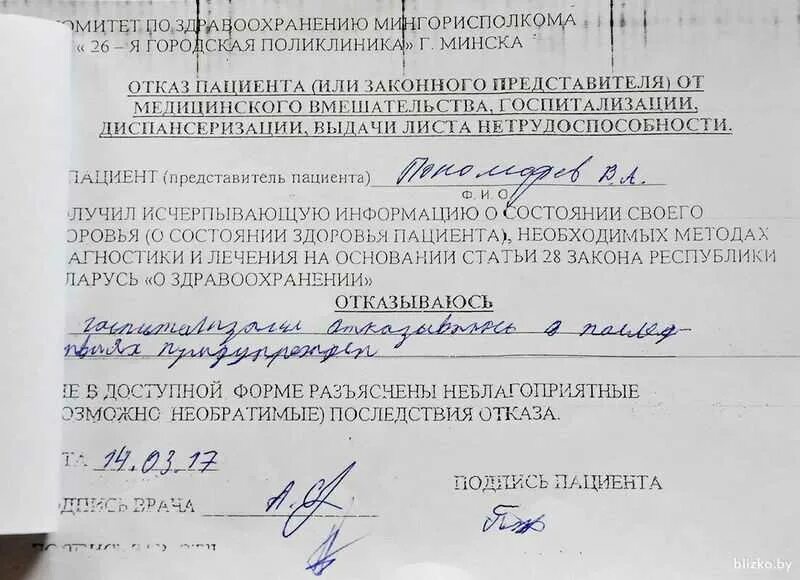 ОМИТЕТ ПО ЗДРАВООХРАНЕНИЮ МИНГОРИСПОЛКОМА
« 26 – Я ГОРОДСКАЯ ПОЛИКЛИНИКА» Г. МИНСКА
ОТКАЗ ПАЦИЕНТА (ИЛИ ЗАКОННОГО ПРЕДСТАВИТЕЛЯ) ОТ
МЕДИЦИНСКОГО ВМЕШАТЕЛЬСТВА, ГОСПИТАЛИЗАЦИИ,
ДИСПАНСЕРИЗАЦИИ, ВЫДАЧИ ЛИСТА НЕТРУДОСПОСОБНОСТИ.
ПАЦИЕНТ (представитель пациента) Пономарев В.А.
Ф. И. О
ОЛУЧИЛ ИСЧЕРПЫВАЮЩУЮ ИНФОРМАЦИЮ О СОСТОЯНИИ СВОЕГО
ОРОВЬЯ (О СОСТОЯНИИ ЗДОРОВЬЯ ПАЦИЕНТА), НЕОБХОДИМЫХ МЕТОДАХ
АГНОСТИКИ И ЛЕЧЕНИЯ НА ОСНОВАНИИ СТАТЬИ 28 ЗАКОНА РЕСПУБЛИКИ
ЛАРУСЬ «О ЗДРАВООХРАНЕНИИ»
ОТКАЗЫВАЮСЬ
госпитализации отказываюсь о послед-
твиях предупрежден
НЕ В ДОСТУПНОЙ ФОРМЕ РАЗЪЯСНЕНЫ НЕБЛАГОПРИЯТНЫЕ
ОЗМОЖНО НЕОБРАТИМЫЕ) ПОСЛЕДСТВИЯ ОТКАЗА.
ТА 14.03.17
ПОДПИСЬ ПАЦИЕНТА
ОДПИСЬ ВРАЧА
blizko.by